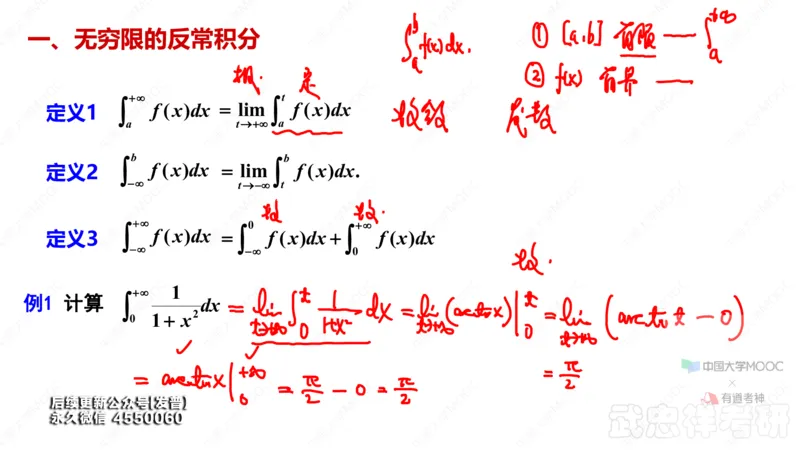 一、无穷限的反常积分
∫_a^b f(x)dx.
① [a,b] 有限 — ∫_a^{+∞}
② f(x) 有界 —
极. 定
定义1 ∫_a^{+∞} f(x)dx = lim_{t→+∞} ∫_a^t f(x)dx
收敛 发散
定义2 ∫_{-∞}^b f(x)dx = lim_{t→-∞} ∫_t^b f(x)dx.
收 收.
定义3 ∫_{-∞}^{+∞} f(x)dx = ∫_{-∞}^0 f(x)dx + ∫_0^{+∞} f(x)dx
收.
例1 计算 ∫_0^{+∞} 1/(1+x²) dx = lim_{t→+∞} ∫_0^t 1/(1+x²) dx = lim_{t→+∞} (arctan x)|_0^t = lim_{t→+∞} (arctan t − 0)
= π/2
= arctan x |_0^{+∞} = π/2 − 0 = π/2
中国大学MOOC
×
有道考神
后续更新公众号[发普]
永久微信 4550060
武忠祥考研